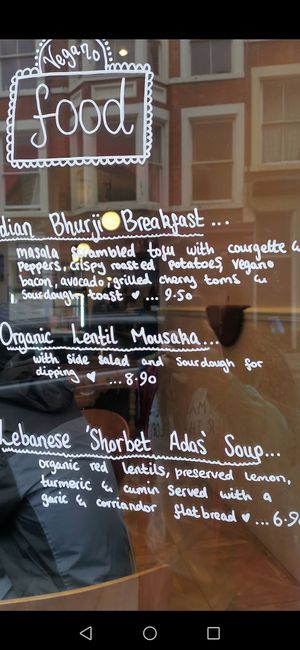 Vegano
food
dian Bhurji Breakfast...
masala scrambled tofu with courgette &
Peppers, crispy roasted potatoes, vegano
bacon, avocado, grilled cherry tom's &
Sourdough toast ♥ ... 9.50
Organic Lentil Mousaka...
with side salad and Sourdough for
dipping ♥ ...8.90
Lebanese 'Shorbet Adas' Soup...
organic red lentils, preserved lemon,
turmeric & cumin served with a
garic & corriandor flatbread ♥ ... 6.9